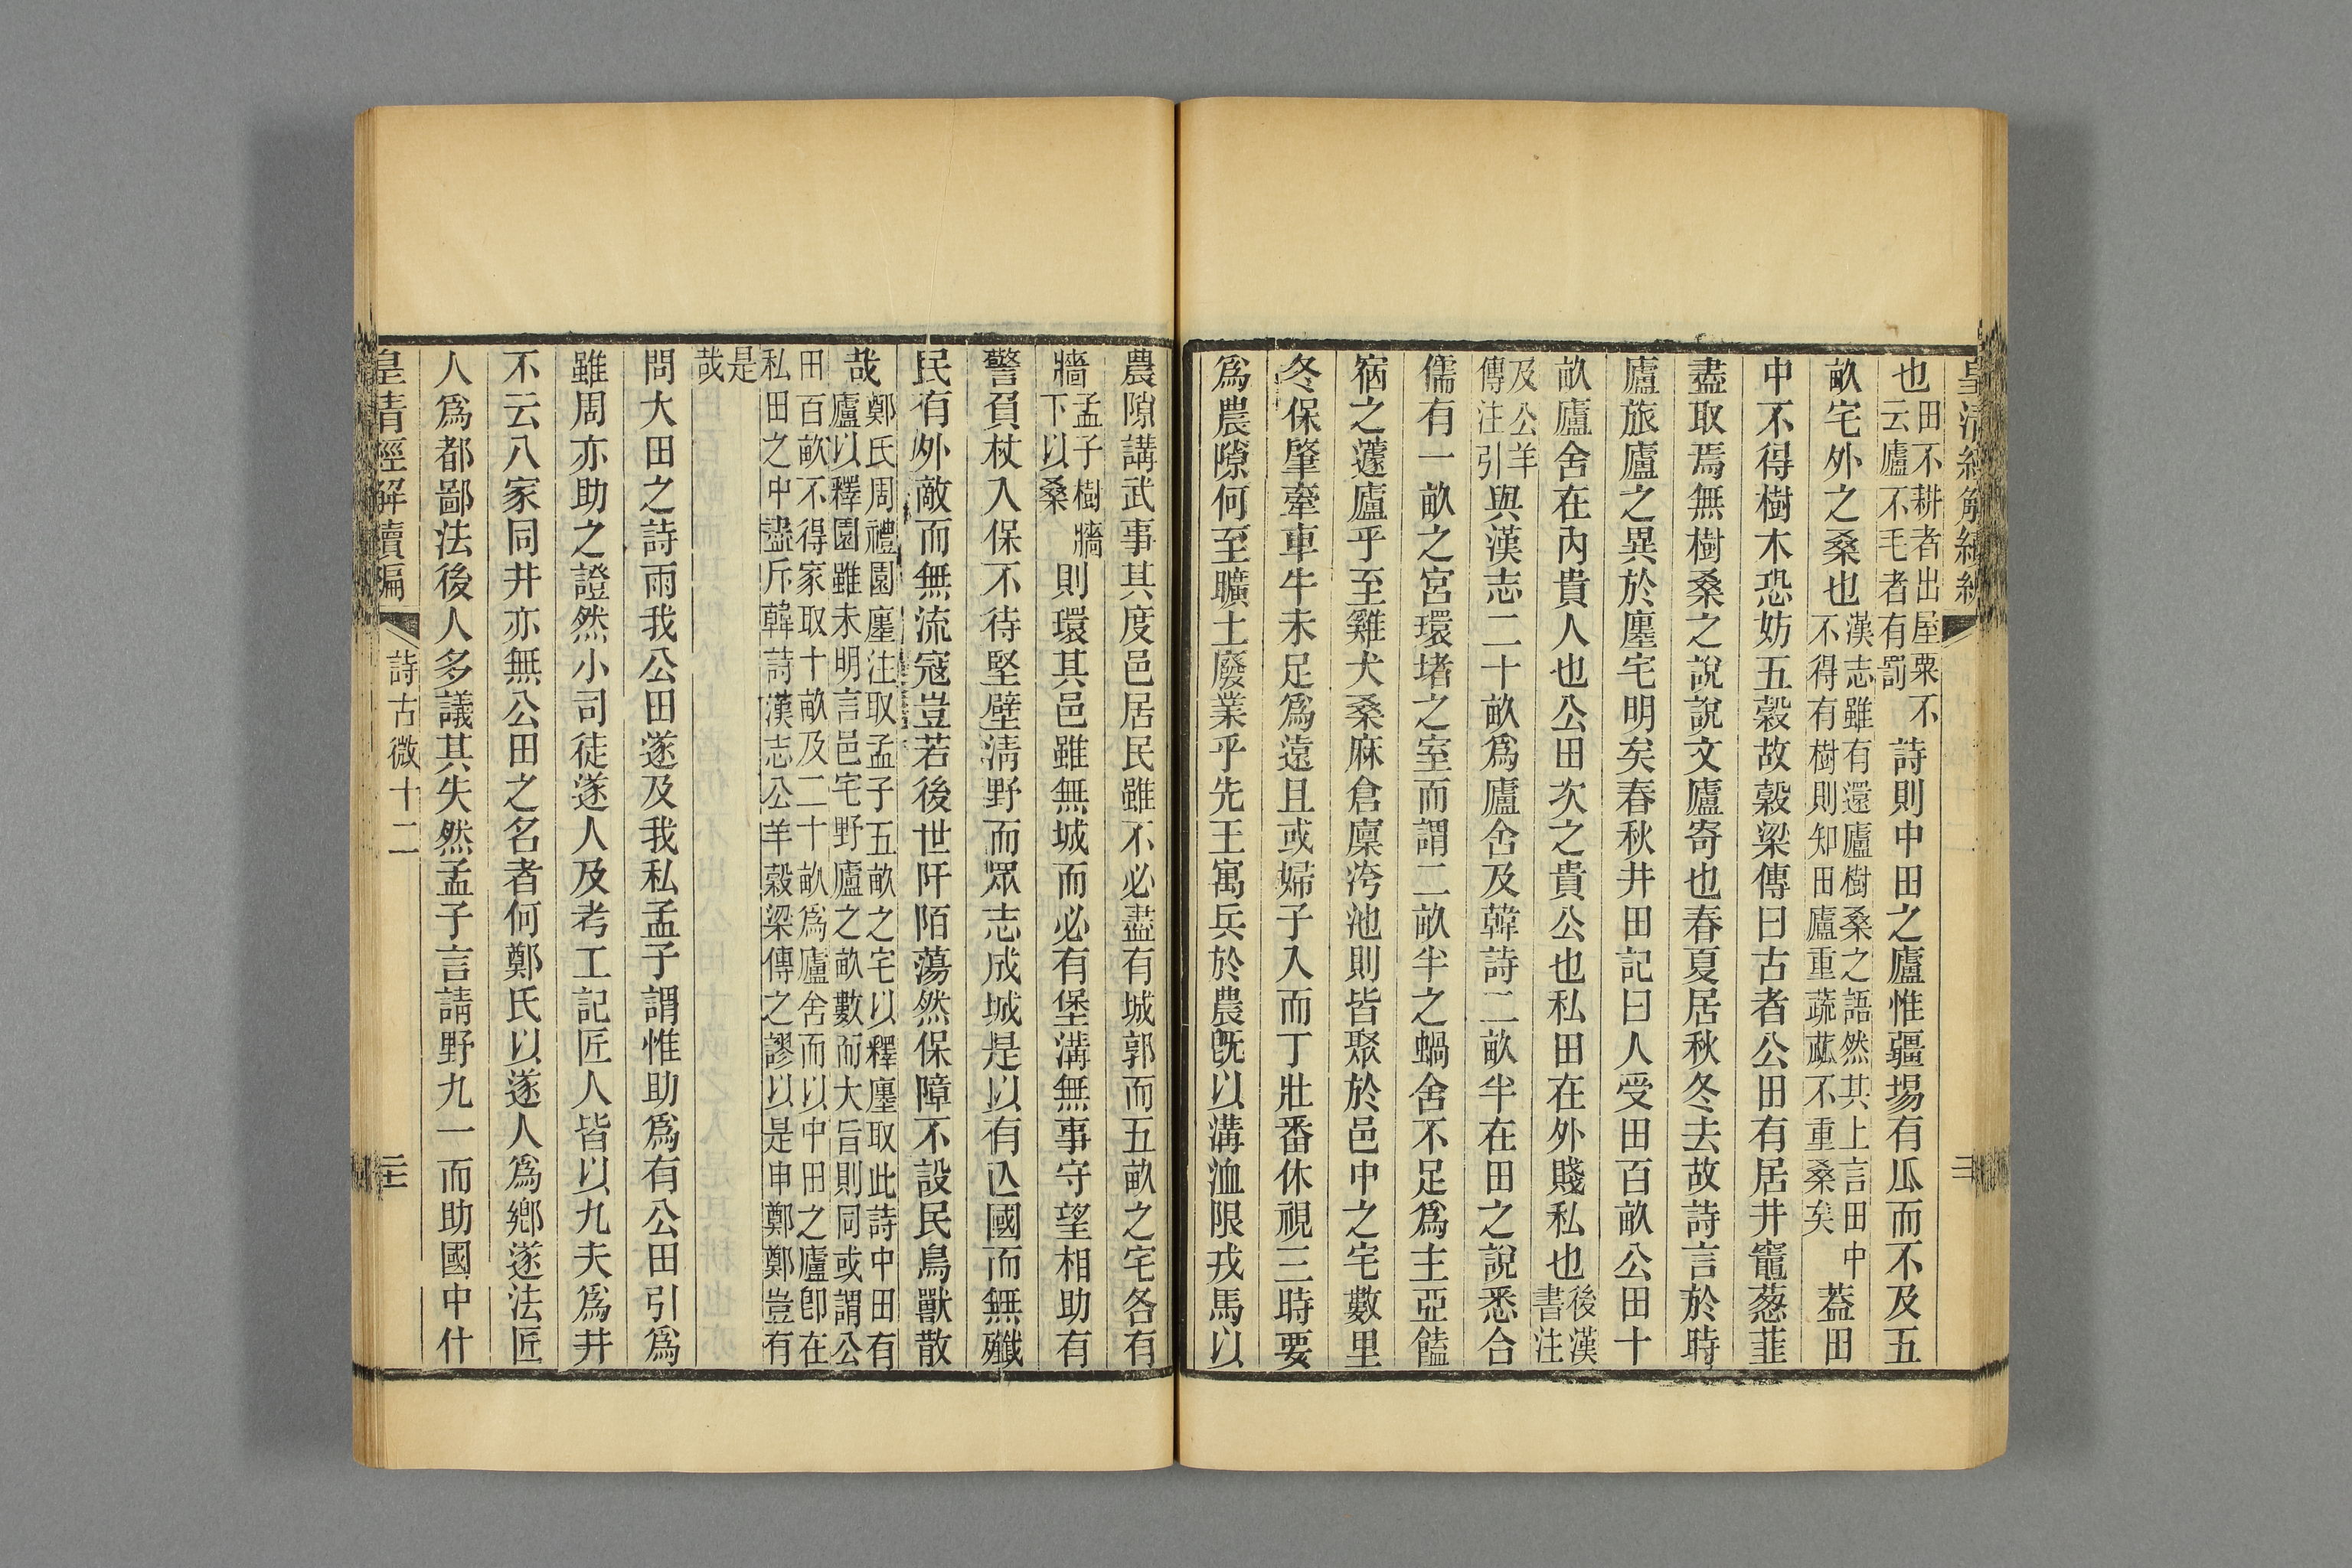 也田不耕者出屋粟不云廬不毛者有罰詩則中田之廬惟疆場有瓜而不及五
畝宅外之桑也漢志雖有還廬樹桑之語然其上言田中不得有樹則知田廬重蔬蓏不重桑矣蓋田
中不得樹木恐妨五穀故穀梁傳曰古者公田有居井竈葱韭
盡取焉無樹桑之說說文廬寄也春夏居秋冬去故詩言於時
廬旅廬之異於廛宅明矣春秋井田記曰人受田百畝公田十
畝廬舍在內貴人也公田次之貴公也私田在外賤私也後漢書注
及公羊傳注引與漢志二十畝爲廬舍及韓詩二畝半在田之說悉合
儒有一畝之宮環堵之室而謂二畝半之蝸舍不足爲主亞饁
宿之蘧廬乎至雞犬桑麻倉廩洿池則皆聚於邑中之宅數里
冬保肇牽車牛未足爲遠且或婦子入而丁壯番休視三時要
爲農隙何至曠土廢業乎先王寓兵於農旣以溝洫限戎馬以
農隙講武事其度邑居民雖不必盡有城郭而五畝之宅各有
牆孟子樹牆下以桑則環其邑雖無城而必有堡溝無事守望相助有
警負杖入保不待堅壁淸野而眾志成城是以有亾國而無殲
民有外敵而無流寇豈若後世阡陌蕩然保障不設民鳥獸散
哉鄭氏周禮園廛注取孟子五畝之宅以釋廛取此詩中田有廬以釋園雖未明言邑宅野廬之畝數而大旨則同或謂公
田百畝不得家取十畝及二十畝爲廬舍而以中田之廬卽在私田之中盡斥韓詩漢志公羊穀梁傳之謬以是申鄭鄭豈有
是哉
問大田之詩雨我公田遂及我私孟子謂惟助爲有公田引爲
雖周亦助之證然小司徒遂人及考工記匠人皆以九夫爲井
不云八家同井亦無公田之名者何鄭氏以遂人爲鄕遂法匠
人爲都鄙法後人多議其失然孟子言請野九一而助國中什
皇清經解續編 詩古微十二